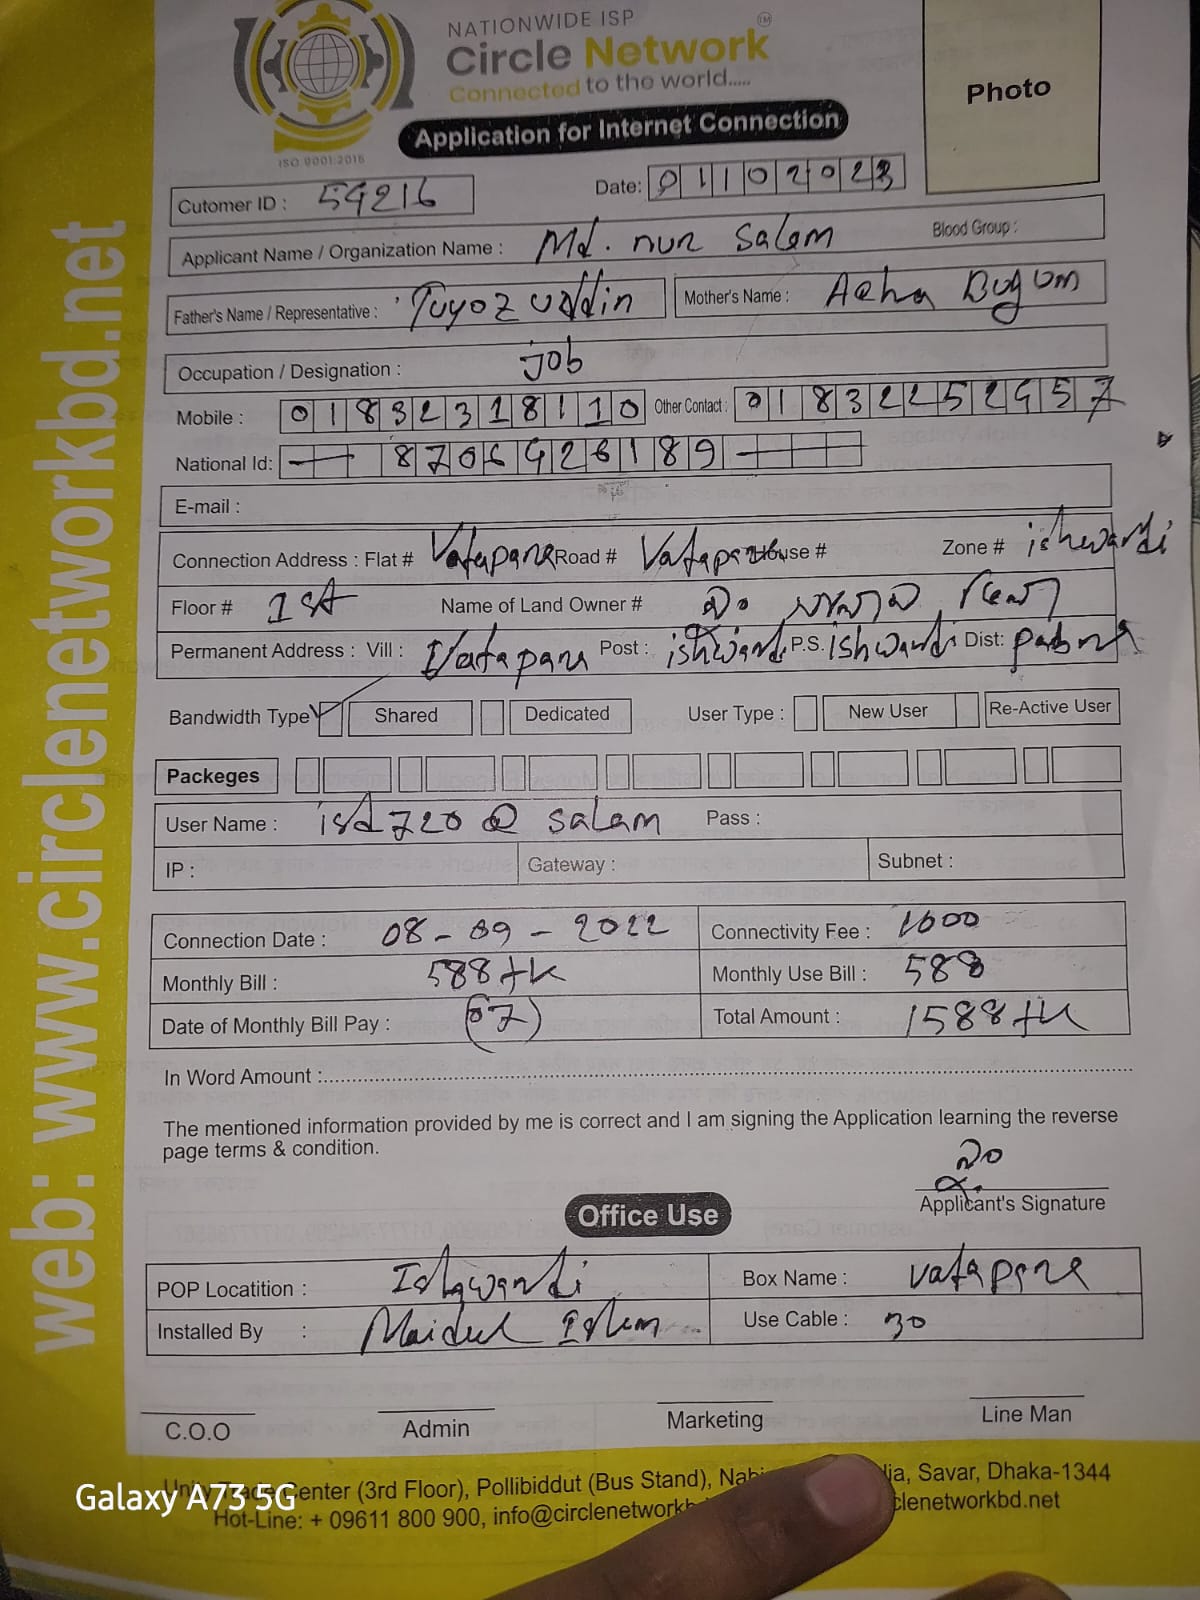 NATIONWIDE ISP TM
Circle Network
Connected to the world.....
Photo
ISO 9001:2015
Application for Internet Connection
Cutomer ID : 54216 Date: 01102023
Applicant Name / Organization Name : Md. nur salam Blood Group :
Father's Name / Representative : uddin Mother's Name : Begum
Occupation / Designation : job
Mobile : 01832318110 Other Contact : 01832252457
National Id: 8706426189
E-mail :
Connection Address : Flat # Vatapara Road # Vatapara House # Zone # ishwardi
Floor # 1st Name of Land Owner #
Permanent Address : Vill : Vatapara Post : ishwardi P.S. ishwardi Dist: pabna
Bandwidth Type Shared Dedicated User Type : New User Re-Active User
Packeges
User Name : isd720@salam Pass :
IP : Gateway : Subnet :
Connection Date : 08-09-2022 Connectivity Fee : 1000
Monthly Bill : 588tk Monthly Use Bill : 588
Date of Monthly Bill Pay : (07) Total Amount : 1588tk
In Word Amount :
The mentioned information provided by me is correct and I am signing the Application learning the reverse
page terms & condition.
Applicant's Signature
Office Use
POP Locatition : Ishwardi Box Name : vatapara
Installed By : Maidul Islam Use Cable : 30
C.O.O Admin Marketing Line Man
Unity Trade Center (3rd Floor), Pollibiddut (Bus Stand), Savar, Dhaka-1344
Hot-Line: + 09611 800 900, info@circlenetwork clenetworkbd.net
web: www.circlenetworkbd.net
Galaxy A73 5G